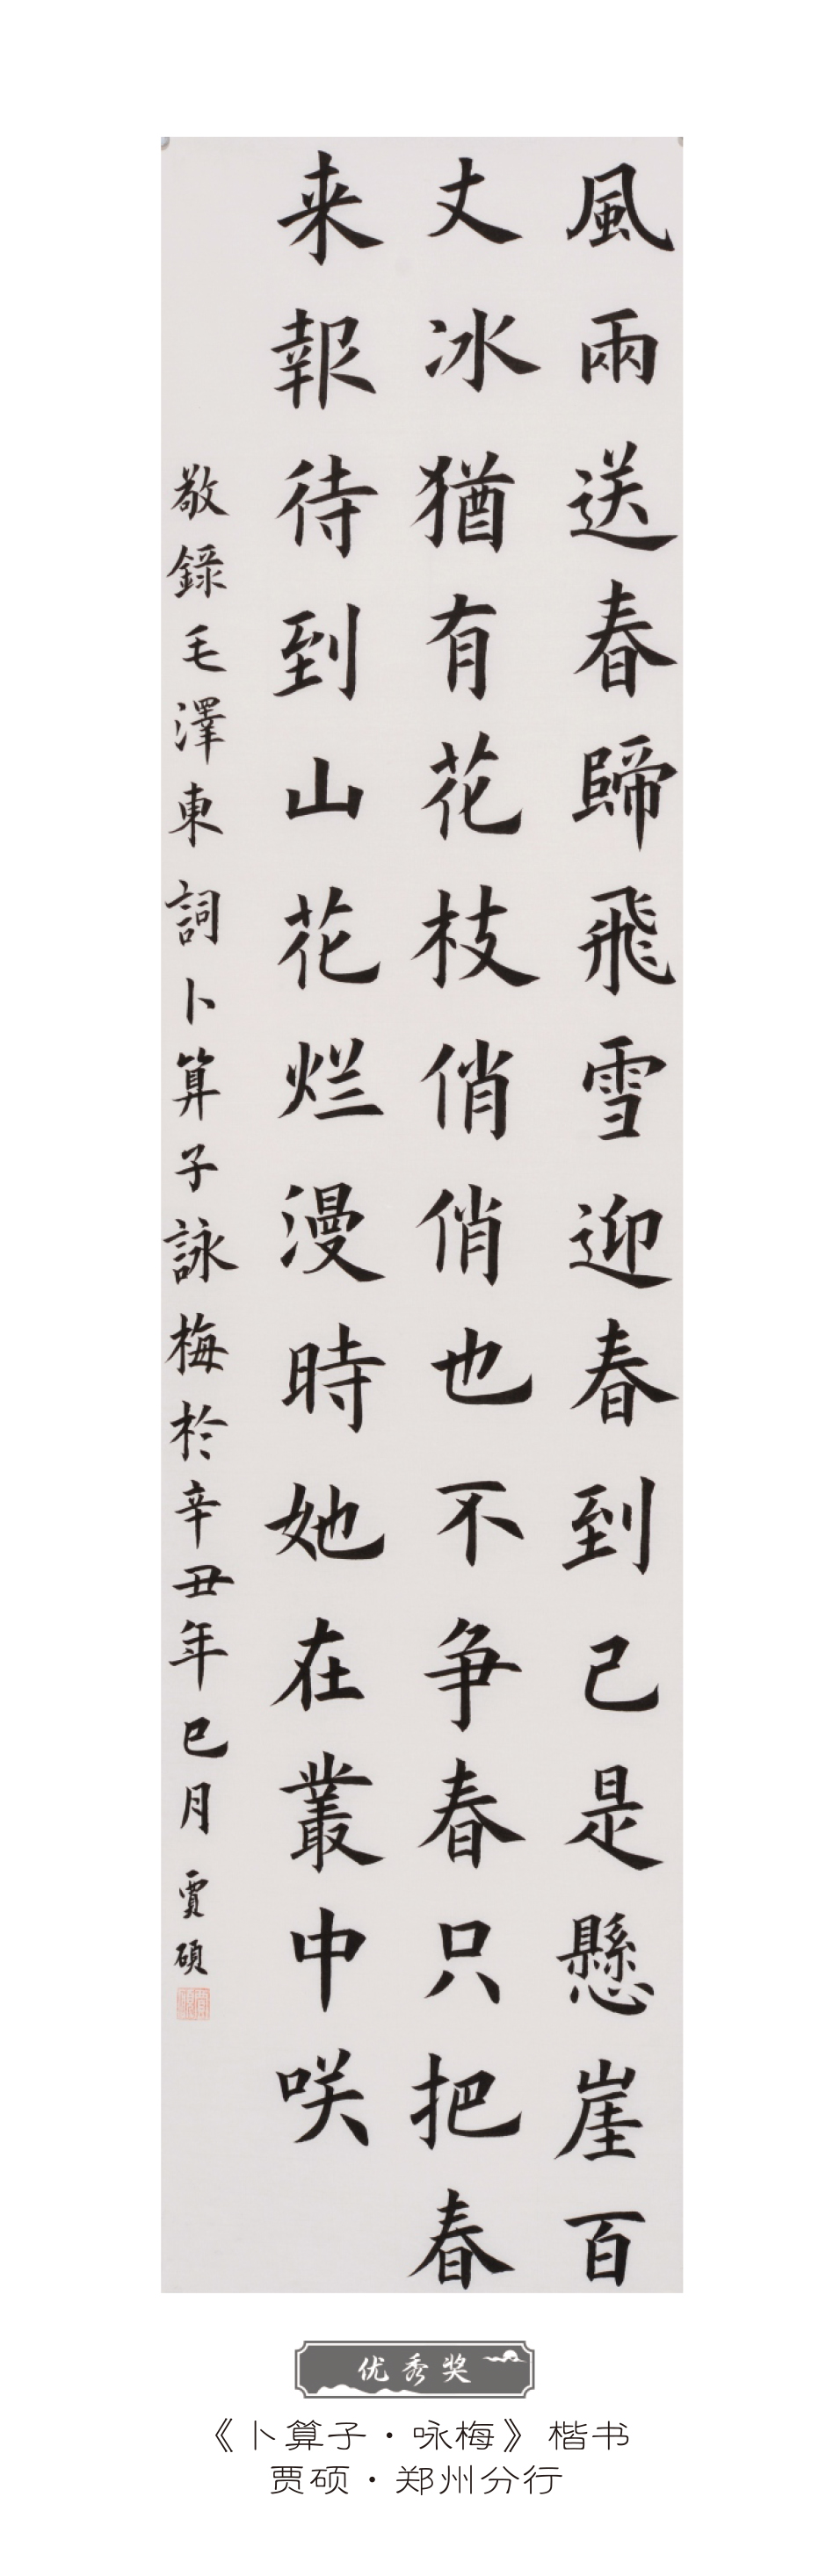 風兩送春歸飛雪迎春到已是懸崖百
丈冰猶有花枝俏俏也不争春只把春
来報待到山花烂漫時她在叢中咲
敬錄毛澤東詞卜算子詠梅於辛丑年巳月 賈碩
賈碩
优秀奖
《卜算子·咏梅》楷书
贾硕·郑州分行